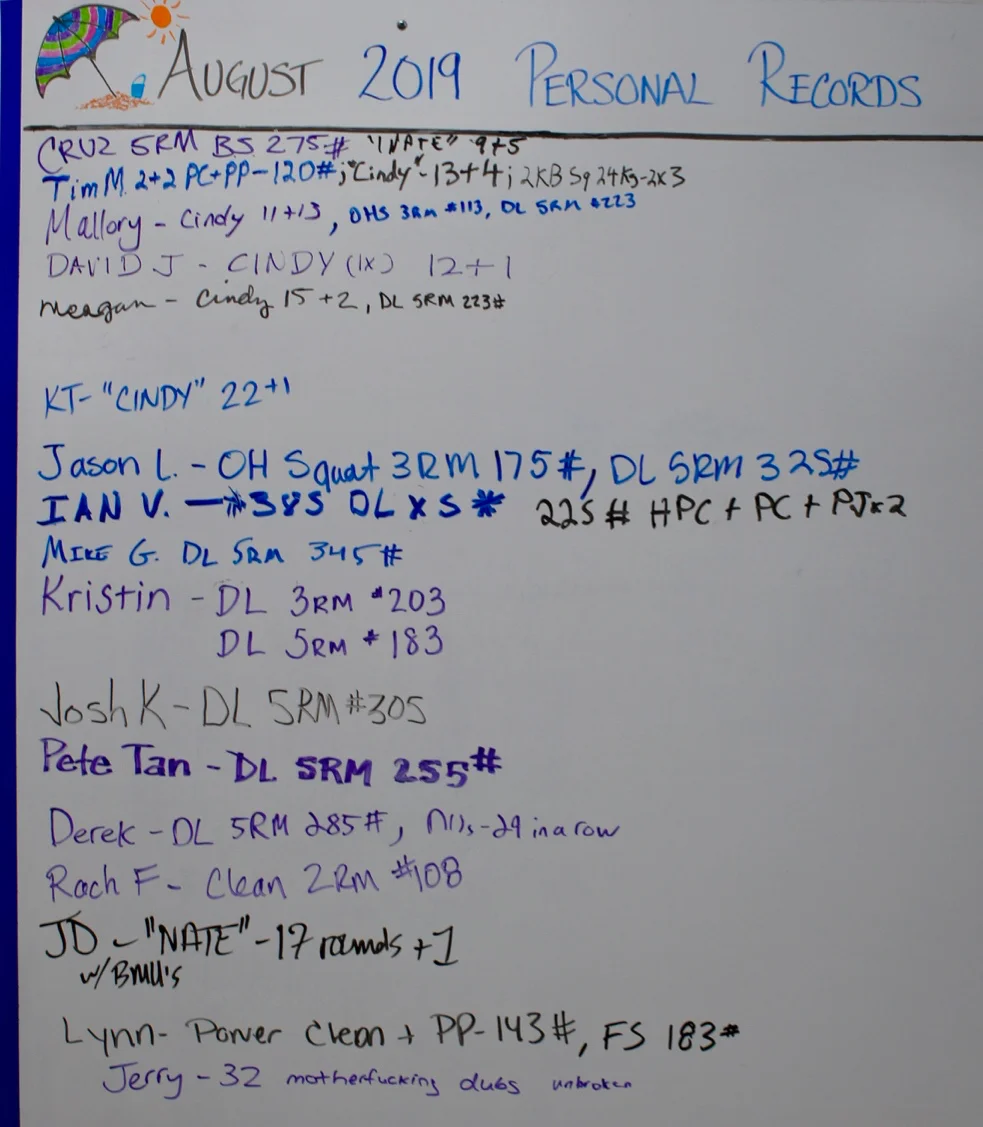 AUGUST 2019 PERSONAL RECORDS
CRUZ 5RM BS 275# "NATE" 9+5
Tim M. 2+2 PC+PP-120#; "Cindy"-13+4; 2KB Sq 24Kg-2x3
Mallory - Cindy 11+13, OHS 3RM #113, DL 5RM #223
DAVID J - CINDY (1X) 12+1
Meagan - Cindy 15+2, DL 5RM 223#
KT- "CINDY" 22+1
Jason L. - OH Squat 3RM 175#, DL 5RM 325#
IAN V. — #385 DL x 5 * 225# HPC + PC + PJx2
MIKE G. DL 5RM 345#
Kristin - DL 3RM #203
DL 5RM #183
Josh K - DL 5RM #305
Pete Tan - DL 5RM 255#
Derek - DL 5RM 285#, DUs-29 in a row
Rach F - Clean 2RM #108
JD - "NATE" - 17 rounds +1
w/BMU's
Lynn- Power Clean + PP-143#, FS 183#
Jerry - 32 motherfucking dubs unbroken